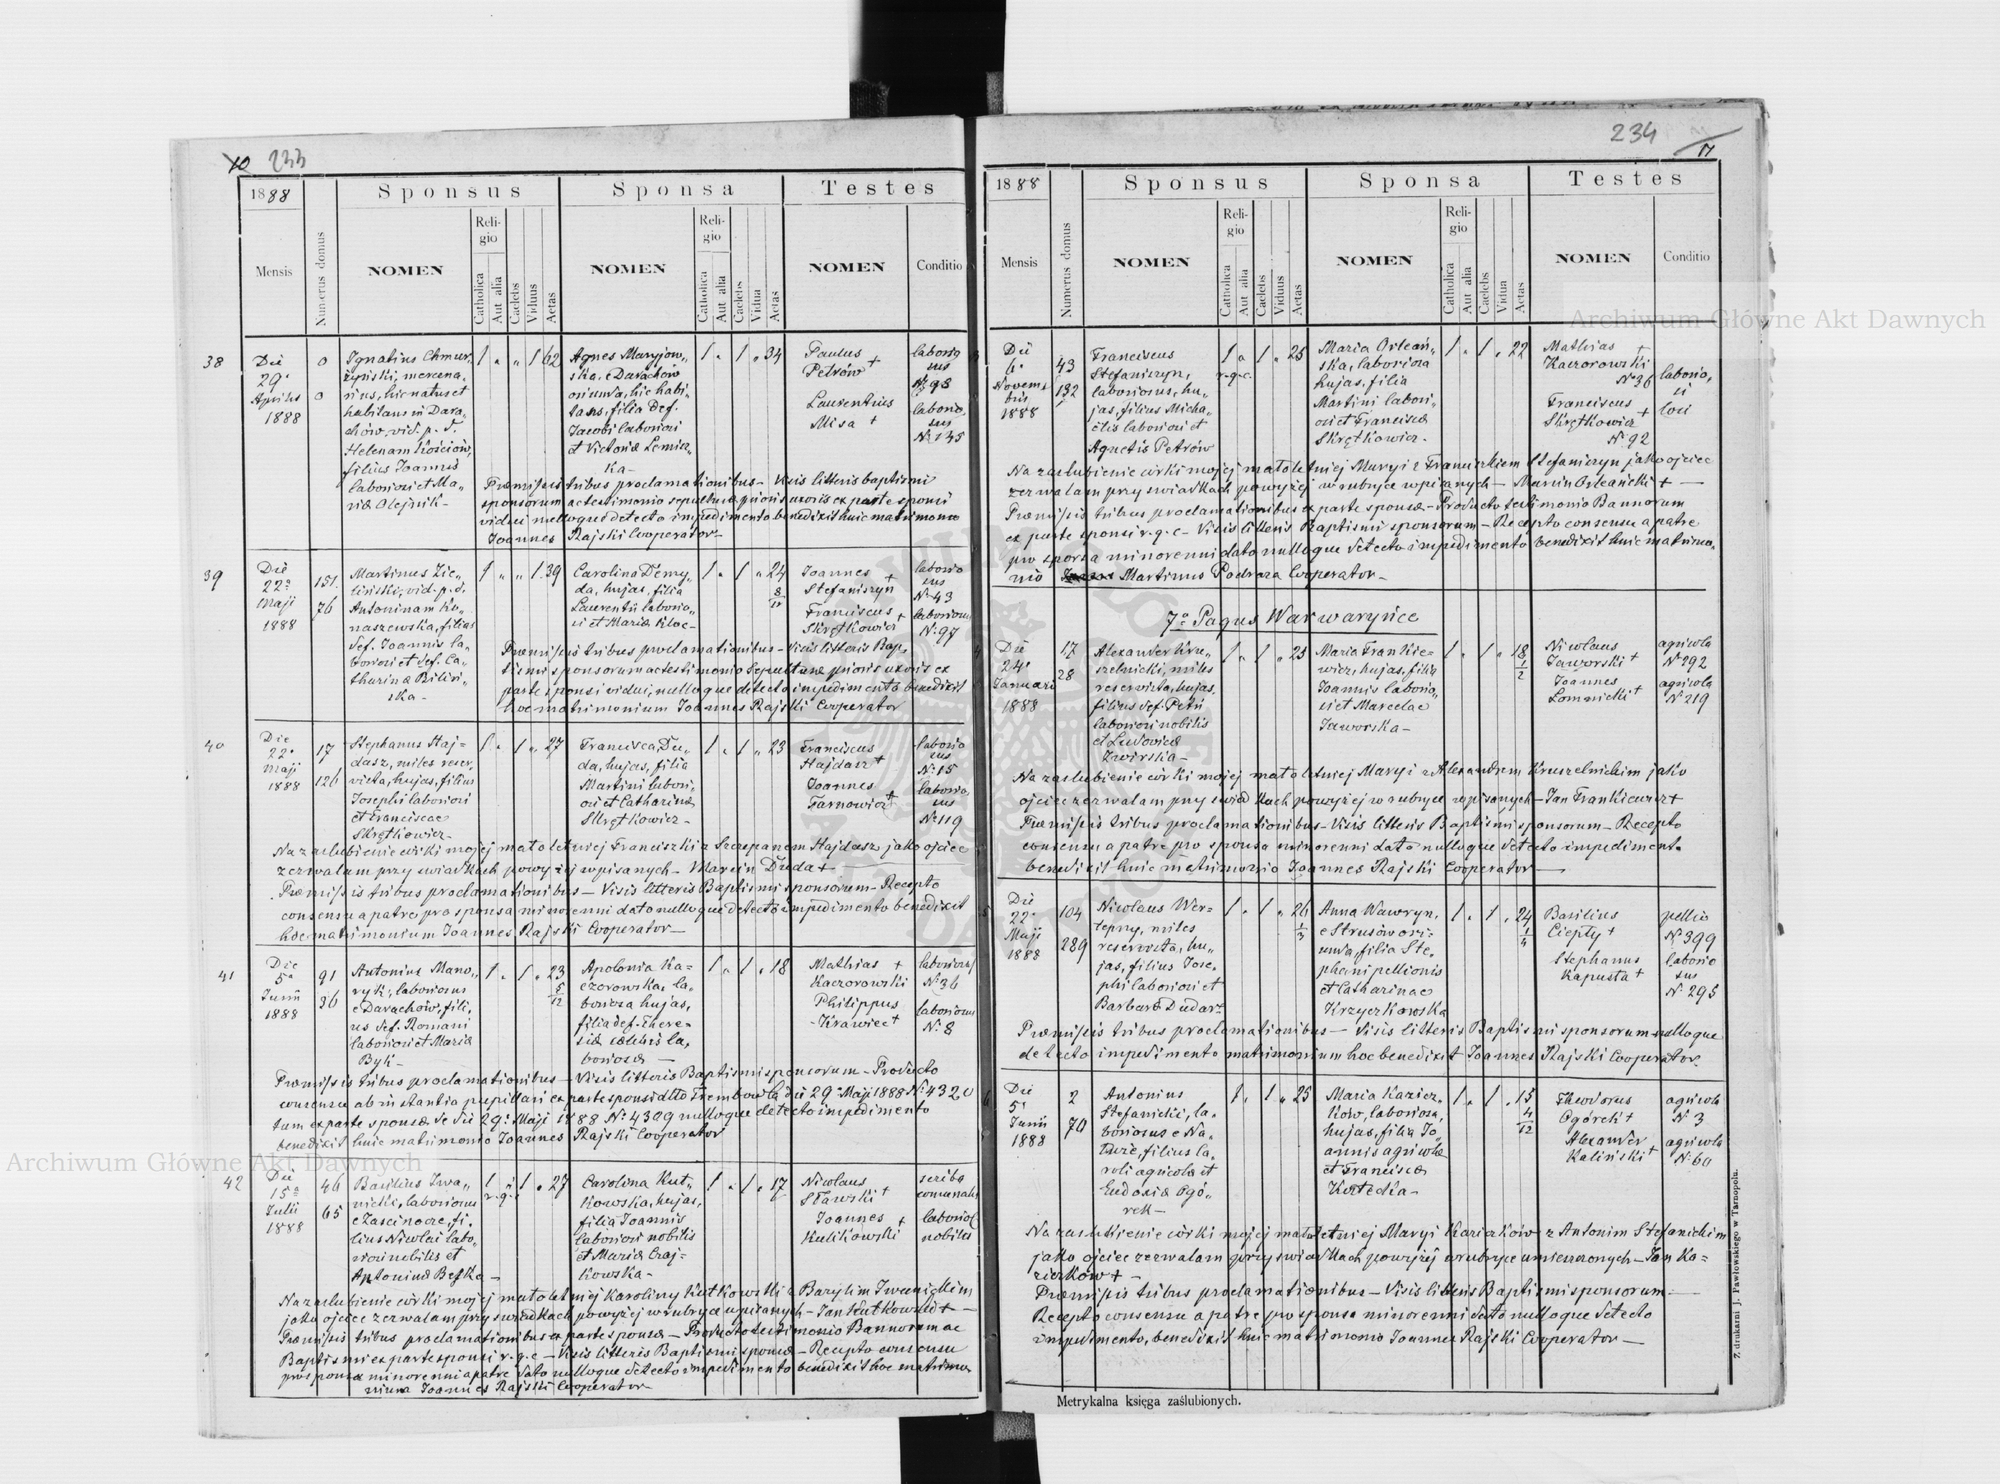 10 233
1888
Mensis
Numerus domus
Sponsus
NOMEN
Religio
Catholica
Aut alia
Caelebs
Viduus
Aetas
Sponsa
NOMEN
Religio
Catholica
Aut alia
Caelebs
Vidua
Aetas
Testes
NOMEN
Conditio
38
Die
29a
Aprilis
1888
0
0
Ignatius Chmur„
zyński, mercena„
rius, hic natus et
habitans in Dara„
chów, vid. p. d.
Helenam Kościów,
filius Joannis
laboriosi et Ma„
riæ Olejnik -
1 „ „ 1 62
Agnes Maryjow„
ska, e Darachów
oriunda, hic habi„
tans, filia def.
Jacobi laboriosi
et Victoriæ Lemisz„
ka -
1 „ 1 „ 34
Paulus
Petrów +
Laurentius
Misa +
laborio
sus
No 98
laborio„
sus
No 135
Præmissis tribus proclamationibus - Visis litteris baptismi
sponsorum ac testimonio sepulturæ prioris uxoris ex parte sponsi
vidui nulloque detecto impedimento benedixit huic matrimonio
Joannes Rajski Cooperator -
39
Die
22a
Maji
1888
151.
76
Martinus Zie„
liński, vid. p. d.
Antoninam Ko„
naszewska, filius
def. Joannis la„
boriosi et def. Ca„
tharinæ Biliń„
ska -
1 „ „ 1. 39
Carolina Demy„
da, hujas, filia
Laurentii laborio„
si et Mariæ Kloc -
1 „ 1 „ 24 8/12
Joannes +
Stefaniszyn
Franciscus +
Skrętkowicz
laborio
sus
No 43
laboriosus
No 97
Præmissis tribus proclamationibus - Visis litteris Bap„
tismi sponsorum ac testimonio Sepulturæ prioris uxoris ex
parte sponsi vidui, nulloque detecto impedimento benedixit
hoc matrimonium Joannes Rajski Cooperator
40
Die
22a
Maji
1888
17
126
Stephanus Haj=
dasz, miles reser„
vista, hujas, filius
Josephi laboriosi
et Franciscae
Skrętkowicz -
1 „ 1 „ 27
Francisca Du„
da, hujas, filia
Martini labori„
osi et Catharinæ
Skrętkowicz -
1 „ 1 „ 23
Franciscus
Hajdasz +
Joannes
Tarnowicz +
laborio
sus
No 15
laborio„
sus
No 119
Na zaślubienie córki mojej małoletniej Franciszki z Szczepanem Hajdasz jako ojciec
zezwalam przy świadkach powyżej wpisanych - Marcin Duda +
Præmissis tribus proclamationibus - Visis litteris Baptismi sponsorum - Recepto
consensu a patre pro sponsa minorenni dato nulloque detecto impedimento benedixit
hoc matrimonium Joannes Rajski Cooperator -
41
Die
5a
Junii
1888
91
36
Antonius Mano„
ryk, laboriosus
e Darachów, fili„
us def. Romani
laboriosi et Mariæ
Byk -
1 „ 1 „ 23 5/12
Apolonia Ka„
czorowska, la„
boriosa hujas,
filia def. There„
siæ cælebis la„
boriosæ -
1 „ 1 „ 18
Mathias +
Kaczorowski
Philippus
Krawiec +
laboriosus
No 36
laboriosus
No 8
Præmissis tribus proclamationibus - Visis litteris Baptismi sponsorum - Producto
consensu ab instantia pupillari ex parte sponsi ddto Trembowla die 29a Maji 1888 No 4320
tum ex parte sponsæ de die 29a Maji 1888 No 4309 nulloque detecto impedimento
benedixit huic matrimonio Joannes Rajski Cooperator
42
Die
15a
Julii
1888
46
65
Basilius Iwa„
nicki, laboriosus
e Zascinocze, fi„
lius Nicolai labo„
riosi nobilis et
Antoninæ Beska -
1 „ 1 „ 27
r. g. c.
Carolina Kut„
kowska, hujas,
filia Joannis
laboriosi nobilis
et Mariæ Czaj„
kowska -
1 „ 1 „ 17
Nicolaus
Sławski +
Joannes +
Kulikowski
scriba
comunalis
laboriosus
nobilis
Na zaślubienie córki mojej małoletniej Karoliny Kutkowskiej z Bazylim Iwanickim
jako ojciec zezwalam przy świadkach powyżej w rubryce wpisanych - Jan Kutkowski + -
Præmissis tribus proclamationibus ex parte sponsæ - Producto testimonio Bannorum ac
Baptismi ex parte sponsi r. g. c - Visis litteris Baptismi sponsæ - Recepto consensu
pro sponsa minorenni a patre dato nulloque detecto impedimento benedixit hoc matrimo„
nium Joannes Rajski Cooperator -
234 11
1888
Mensis
Numerus domus
Sponsus
NOMEN
Religio
Catholica
Aut alia
Caelebs
Viduus
Aetas
Sponsa
NOMEN
Religio
Catholica
Aut alia
Caelebs
Vidua
Aetas
Testes
NOMEN
Conditio
Die
6a
Novem„
bris
1888
43
132
Franciscus
Stefaniszyn,
laboriosus, hu„
jas, filius Micha„
elis laboriosi et
Agnetis Petrów
1 „ 1 „ 25
r. g. c.
Maria Orleań„
ska, laboriosa
hujas, filia
Martini labori„
osi et Franciscæ
Skrętkowicz -
1 „ 1 „ 22
Mathias +
Kaczorowski
No 36
Franciscus
Skrętkowicz +
No 92
laborio„
si
loci
Na zaślubienie córki mojej małoletniej Maryi z Franciszkiem Stefaniszyn jako ojciec
zezwalam przy świadkach powyżej w rubryce wpisanych - Marcin Orleański + -
Præmissis tribus proclamationibus ex parte sponsæ - Producto testimonio Bannorum
ex parte sponsi r. g. c - Visis litteris Baptismi sponsorum - Recepto consensu a patre
pro sponsa minorenni dato nulloque detecto impedimento benedixit huic matrimo„
nio Martinus Podraza Cooperator -
7o Pagus Warwaryńce
Die
24a
Januarii
1888
17
28
Alexander Kru„
szelnicki, miles
reservista, hujas,
filius def. Petri
laboriosi nobilis
et Ludovicæ
Zwirska -
1 „ 1 „ 25
Maria Frankie„
wicz, hujas, filia
Joannis laborio„
si et Marcelae
Jaworska -
1 „ 1 „ 18 1/2
Nicolaus
Jaworski +
Joannes
Lomnicki +
agricola
No 292
agricola
No 219
Na zaślubienie córki mojej małoletniej Maryi z Alexandrem Kruszelnickim jako
ojciec zezwalam przy świadkach powyżej w rubryce wpisanych - Jan Frankiewicz +
Præmissis tribus proclamationibus - Visis litteris Baptismi sponsorum - Recepto
consensu a patre pro sponsa minorenni dato nulloque detecto impedimento
benedixit huic matrimonio Joannes Rajski Cooperator -
Die
22a
Maji
1888
104
289
Nicolaus Wer=
tepny, miles
reservista, hu„
jas, filius Jose„
phi laboriosi et
Barbaræ Dudar -
1 „ 1 „ 26 1/3
Anna Wawryn,
e Strusów ori„
unda, filia Ste„
phani pellionis
et Catharinae
Krzyczkowska
1 „ 1 „ 24 1/4
Basilius
Ciepły +
Stephanus
Kapusta +
pellio
No 399
laborio
sus
No 295
Præmissis tribus proclamationibus - Visis litteris Baptismi sponsorum nulloque
detecto impedimento matrimonium hoc benedixit Joannes Rajski Cooperator
Die
5a
Junii
1888
2
70
Antonius
Stefanicki, la„
boriosus e Na„
luże, filius Ca„
roli agricolæ et
Eudoxiæ Ogó„
rek -
1 „ 1 „ 25
Maria Kazicz„
ków, laboriosa,
hujas, filia Jo„
annis agricolæ
et Franciscæ
Kotecka -
1 „ 1 „ 15 4/12
Theodorus
Ogórek +
Alexander
Kaliński +
agricola
No 3
agricola
No 60
Na zaślubienie córki mojej małoletniej Maryi Kaziczków z Antonim Stefanickim
jako ojciec zezwalam przy świadkach powyżej w rubryce umieszczonych - Jan Ka=
ziczków + -
Præmissis tribus proclamationibus - Visis litteris Baptismi sponsorum -
Recepto consensu a patre pro sponsa minorenni dato nulloque detecto
impedimento, benedixit huic matrimonio Joannes Rajski Cooperator -
Metrykalna księga zaślubionych.
Z drukarni J. Pawłowskiego w Tarnopolu.
Archiwum Główne Akt Dawnych
Archiwum Główne Akt Dawnych